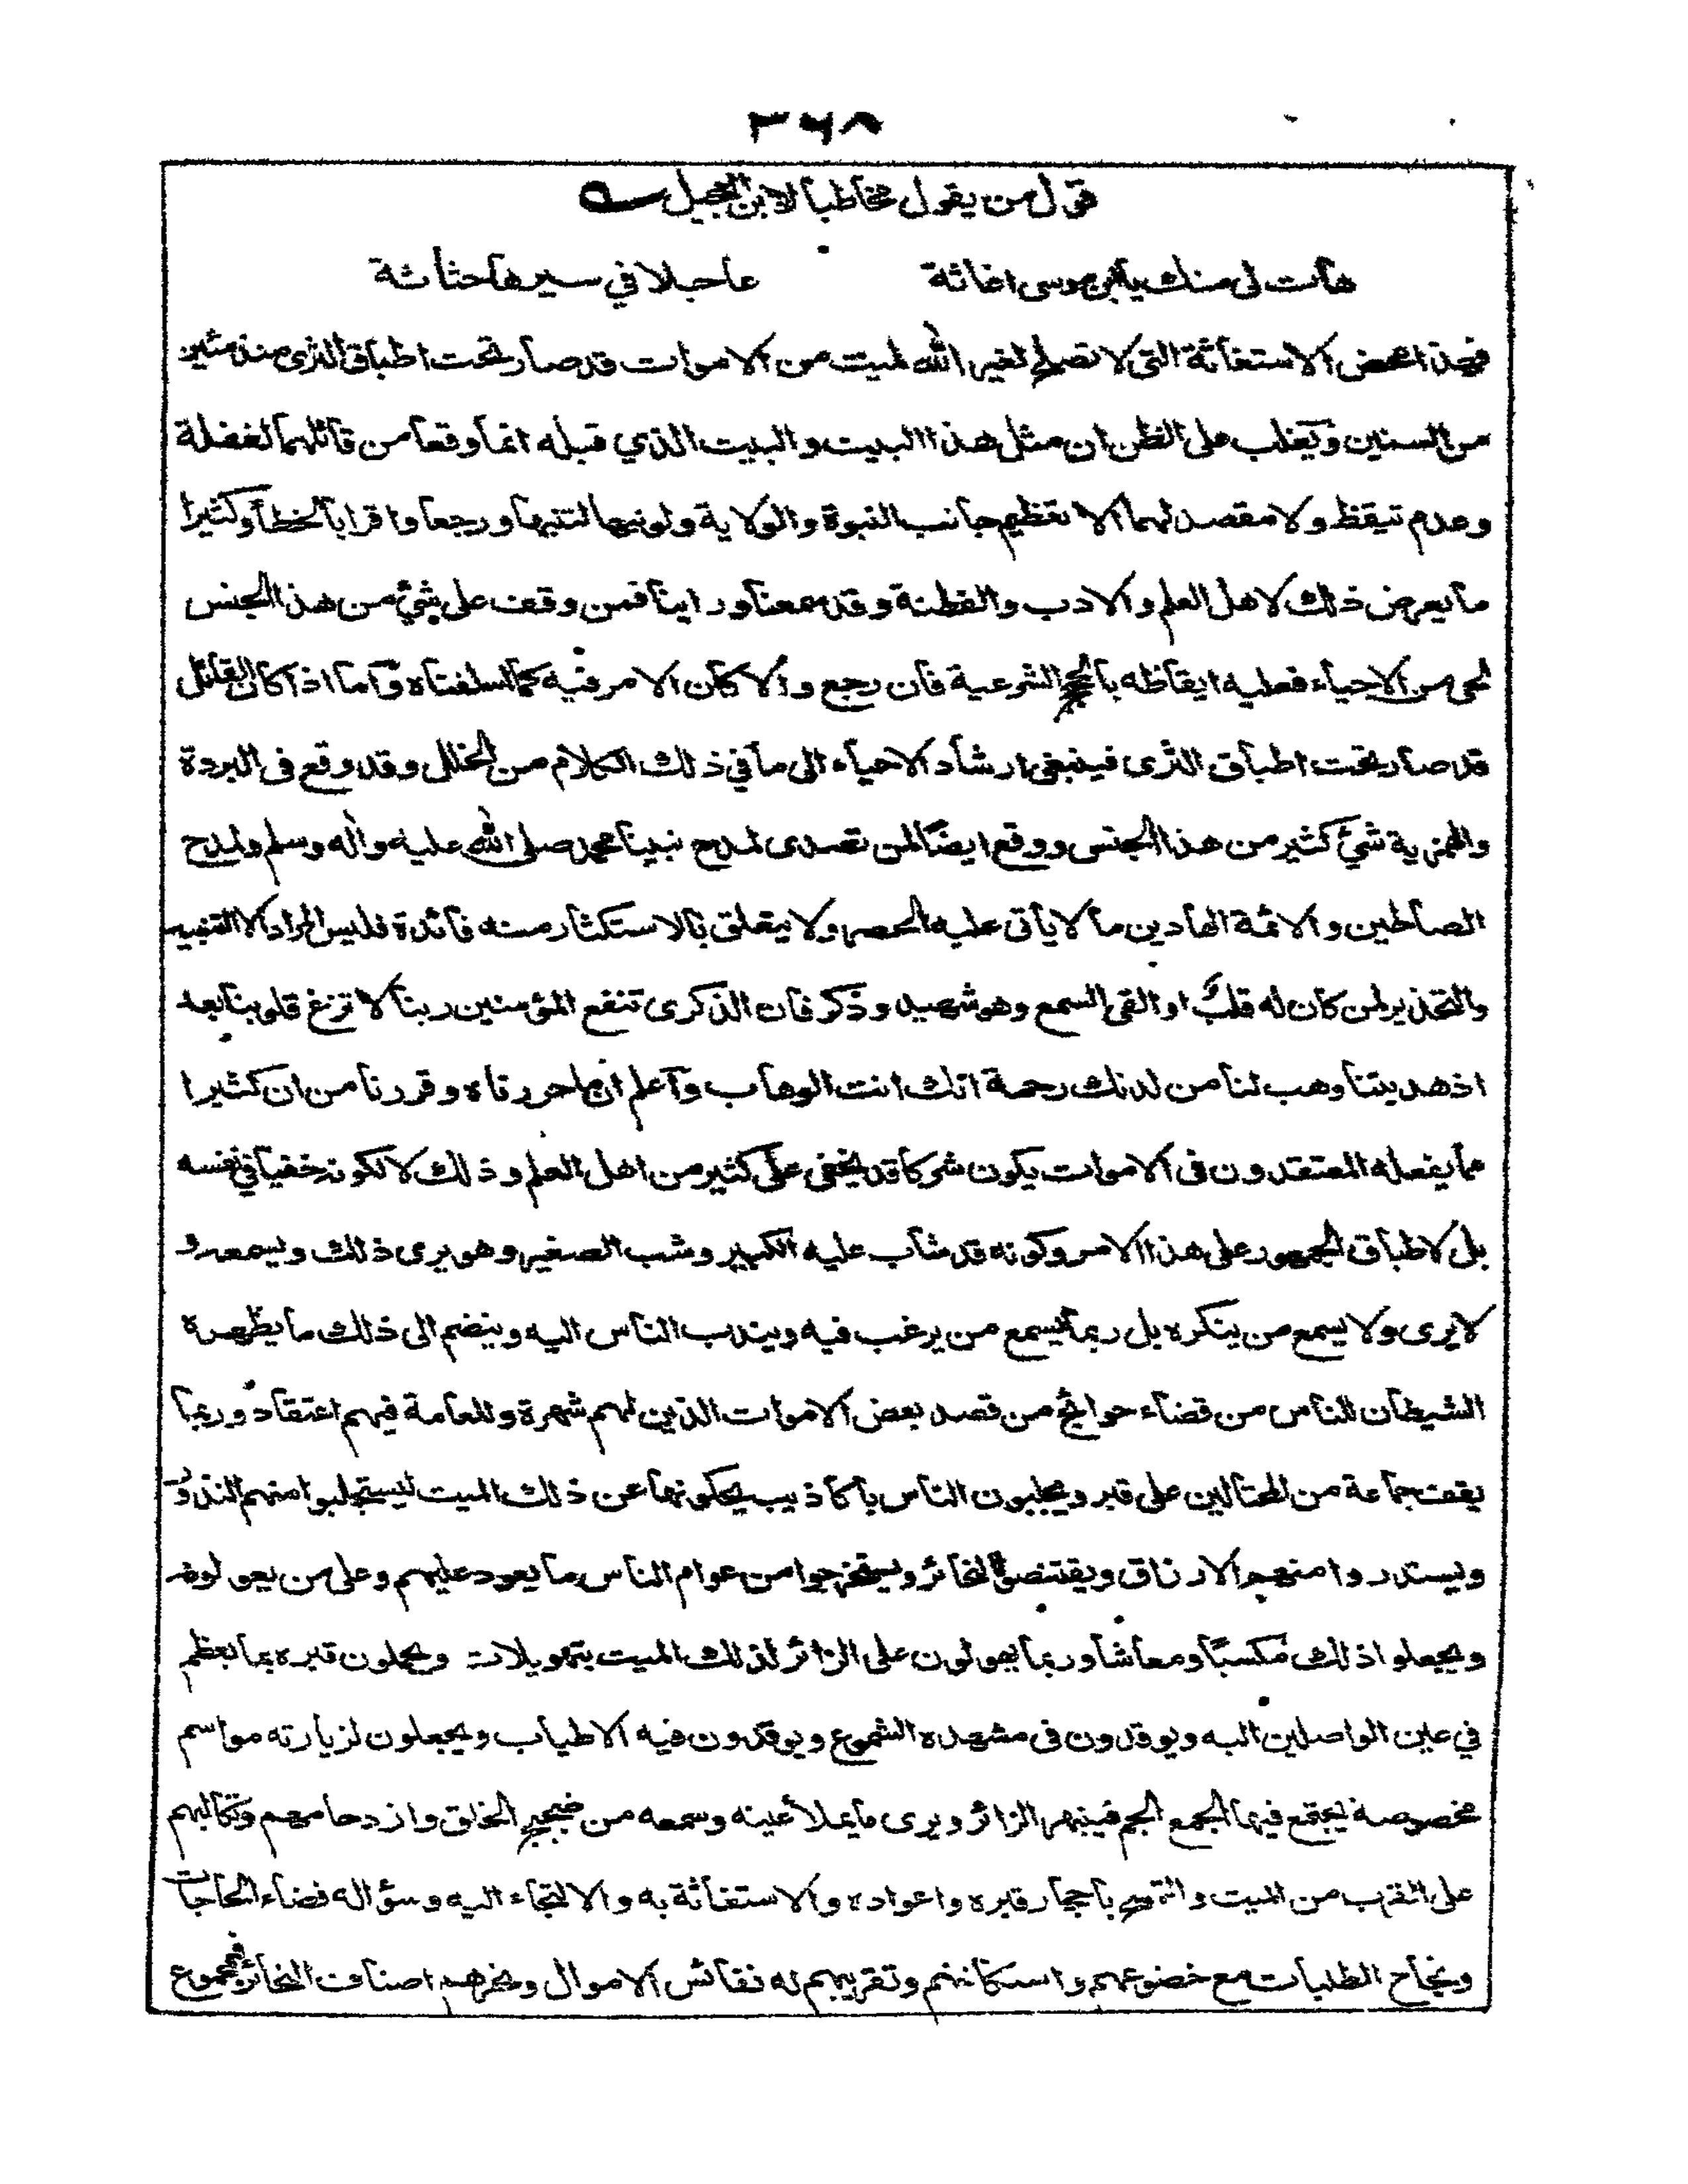 ٣٦٨
قول من يقول مخاطبا لابن العجيل
هات لي منك يا ابن موسى اغاثة عاجلا في سيرها حثاثة
فهذا محض الاستغاثة التي لا تصلح لغير الله لميت من الاموات قد صار تحت اطباق الثرى منذ مئين
من السنين ويغلب على الظن ان مثل هذا البيت والبيت الذي قبله انما وقعا من قائلهما لغفلة
وعدم تيقظ ولا مقصد لهما الا تعظيم جانب النبوة والولاية ولو نبها لتنبها ورجعا واقرا بالخطأ وكثيرا
ما يعرض ذلك لاهل العلم والادب والفطنة وقد سمعنا وراينا فمن وقف على شيء من هذا الجنس
لحي من الاحياء فعليه ايقاظه بالحجج الشرعية فان رجع والا كان الامر فيه كما اسلفناه واما اذا كان القائل
قد صار تحت اطباق الثرى فينبغي ارشاد الاحياء الى ما في ذلك الكلام من الخلل وقد وقع في البردة
والهمزية شيء كثير من هذا الجنس ووقع ايضا لمن تصدى لمدح نبينا محمد صلى الله عليه واله وسلم ولمدح
الصالحين والائمة الهادين ما لا يأتي عليه الحصر ولا يتعلق بالاستكثار منه فائدة فليس المراد الا التنبيه
والتحذير لمن كان له قلب او القى السمع وهو شهيد وذكر فان الذكرى تنفع المؤمنين ربنا لا تزغ قلوبنا بعد
اذ هديتنا وهب لنا من لدنك رحمة انك انت الوهاب واعلم ان ما حررناه وقررنا من ان كثيرا
مما يفعله المعتقدون في الاموات يكون شركا قد يخفى على كثير من اهل العلم وذلك لا لكونه خفيا في نفسه
بل لاطباق الجمهور على هذا الامر وكونه قد شاب عليه الكبير وشب الصغير وهو يرى ذلك ويسمعه و
لا يرى ولا يسمع من ينكره بل ربما يسمع من يرغب فيه ويندب الناس اليه وينضم الى ذلك ما يظهره
الشيطان للناس من قضاء حوائج من قصد بعض الاموات الذين لهم شهرة وللعامة فيهم اعتقاد وربما
يقف جماعة من المحتالين على قبر ويجلبون الناس باكاذيب يحكونها عن ذلك الميت ليستجلبوا منهم النذور
ويستدروا منهم الارزاق ويقتنصوا النحائر ويستخرجوا من عوام الناس ما يعود عليهم وعلى من يعولونه
ويجعلوا ذلك مكسبا ومعاشا وربما يهولون على الزائر لذلك الميت بتهويلات ويجملون قبره بما يعظم
في عين الواصلين اليه ويوقدون في مشهده الشموع ويوقدون فيه الاطياب ويجعلون لزيارته مواسم
مخصوصة يجتمع فيها الجمع الجم فينبهر الزائر ويرى ما يملأ عينه وسمعه من ضجيج الخلق وازدحامهم وتكالبهم
على القرب من الميت والتمسح باحجار قبره واعواده والاستغاثة به والالتجاء اليه وسؤاله قضاء الحاجات
ونجاح الطلبات مع خضوعهم واستكانتهم وتقريبهم له نفائس الاموال ونحرهم اصناف النحائر فبمجموع